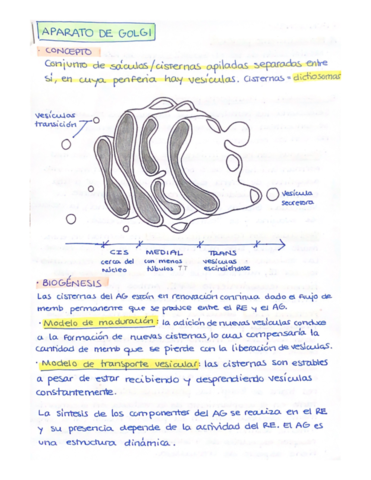 APARATO DE GOLGI
· CONCEPTO
Conjunto de sáculos/cisternas apiladas separadas entre
sí, en cuya periferia hay vesículas. Cisternas = dictiosomas
vesículas
transición
vesícula
secretora
CIS MEDIAL TRANS
cerca del con menos vesículas
núcleo túbulos escindiéndose
· BIOGÉNESIS
Las cisternas del AG están en renovación continua dado el flujo de
memb permanente que se produce entre el RE y el AG.
· Modelo de maduración: la adición de nuevas vesículas conduce
a la formación de nuevas cisternas, lo cual compensaría la
cantidad de memb que se pierde con la liberación de vesículas.
· Modelo de transporte vesicular: las cisternas son estables
a pesar de estar recibiendo y desprendiendo vesículas
constantemente.
La síntesis de los componentes del AG se realiza en el RE
y su presencia depende de la actividad del RE. El AG es
una estructura dinámica.